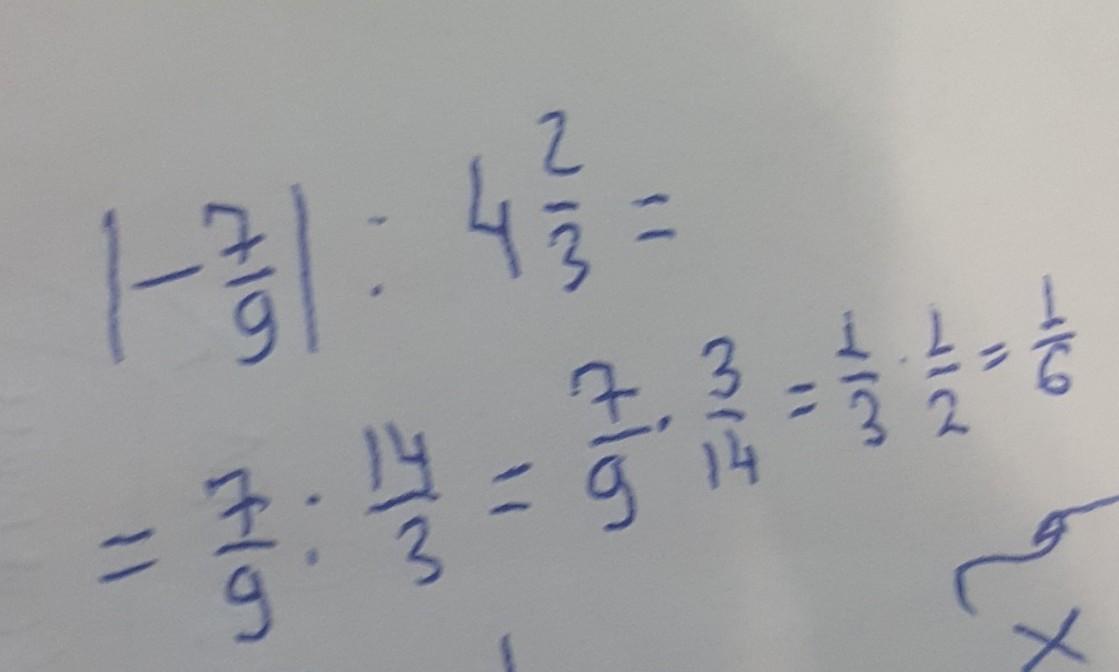 |-7/9| : 4 2/3 =
= 7/9 : 14/3 = 7/9 · 3/14 = 1/3 · 1/2 = 1/6
x